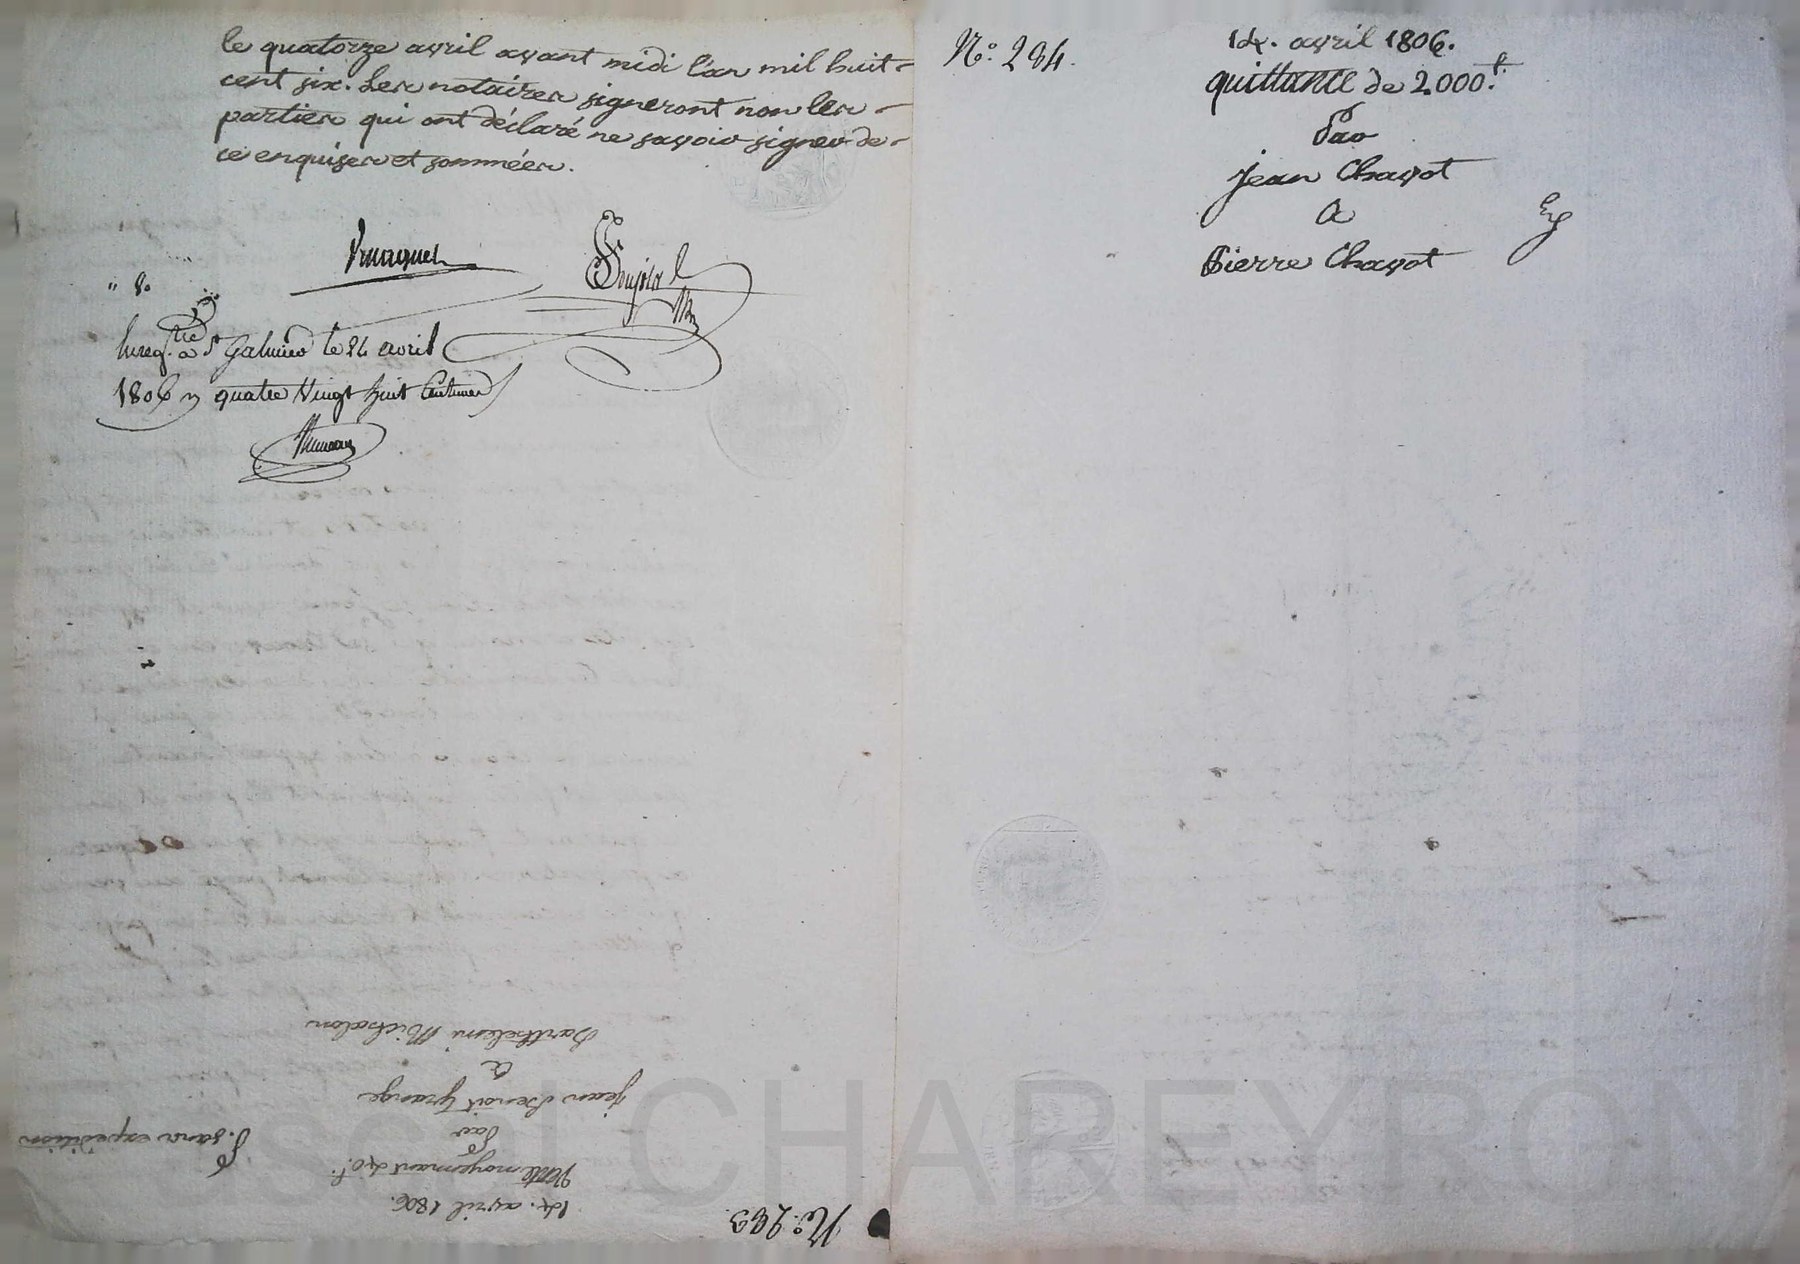 le quatorze avril avant midi l'an mil huit-
cent six. Les notaires signeront non les-
parties qui ont déclaré ne savoir signer de-
ce enquises et sommées.
" 80
Enreg.tré à St Galmier le 24 avril
1806 quatre Vingt huit Centimes
N°. 284.
14. avril 1806.
quittance de 2000.f.
Par
jean Chavot
A
Pierre Chavot
Exp
N°. 283.
14. avril 1806.
Vente moyennant 40f.
Par
jean Benoît Grange
A
Barthélemi Michalon
P. sans expédition
Pascal CHAREYRON